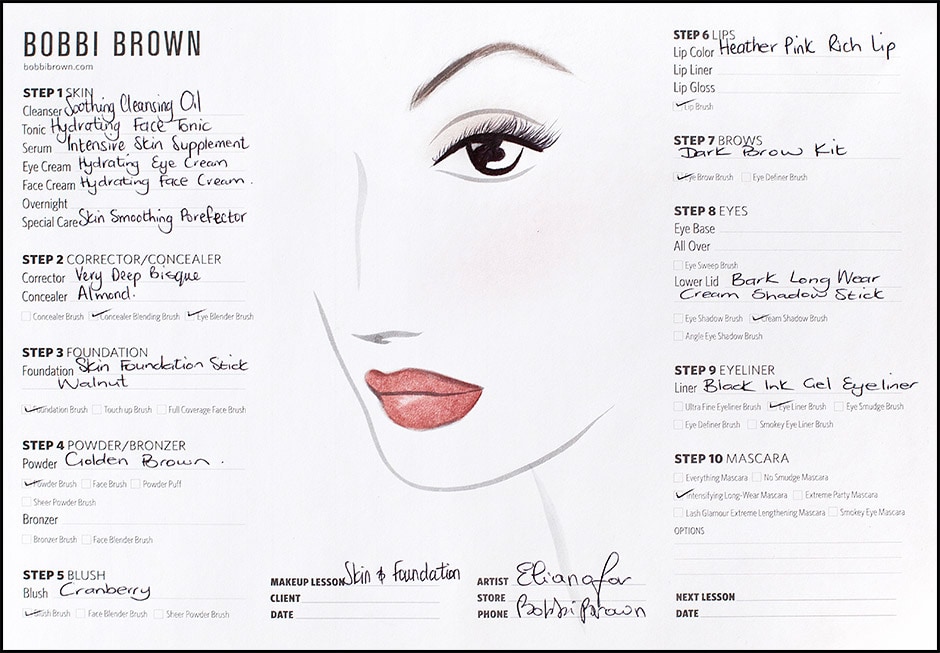 BOBBI BROWN
bobbibrown.com
STEP 1 SKIN
Cleanser Soothing Cleansing Oil
Tonic Hydrating Face Tonic
Serum Intensive Skin Supplement
Eye Cream Hydrating Eye Cream
Face Cream Hydrating Face Cream.
Overnight
Special Care Skin Smoothing Porefector
STEP 2 CORRECTOR/CONCEALER
Corrector Very Deep Bisque
Concealer Almond.
Concealer Brush Concealer Blending Brush Eye Blender Brush
STEP 3 FOUNDATION
Foundation Skin Foundation Stick
Walnut
Foundation Brush Touch up Brush Full Coverage Face Brush
STEP 4 POWDER/BRONZER
Powder Golden Brown.
Powder Brush Face Brush Powder Puff
Sheer Powder Brush
Bronzer
Bronzer Brush Face Blender Brush
STEP 5 BLUSH
Blush Cranberry
Blush Brush Face Blender Brush Sheer Powder Brush
MAKEUP LESSON Skin & Foundation
CLIENT
DATE
ARTIST Eliana for
STORE
PHONE Bobbi Brown
STEP 6 LIPS
Lip Color Heather Pink Rich Lip
Lip Liner
Lip Gloss
Lip Brush
STEP 7 BROWS
Dark Brow Kit
Eye Brow Brush Eye Definer Brush
STEP 8 EYES
Eye Base
All Over
Eye Sweep Brush
Lower Lid Bark Long Wear
Cream Shadow Stick
Eye Shadow Brush Cream Shadow Brush
Angle Eye Shadow Brush
STEP 9 EYELINER
Liner Black Ink Gel Eyeliner
Ultra Fine Eyeliner Brush Eye Liner Brush Eye Smudge Brush
Eye Definer Brush Smokey Eye Liner Brush
STEP 10 MASCARA
Everything Mascara No Smudge Mascara
Intensifying Long-Wear Mascara Extreme Party Mascara
Lash Glamour Extreme Lengthening Mascara Smokey Eye Mascara
OPTIONS
NEXT LESSON
DATE